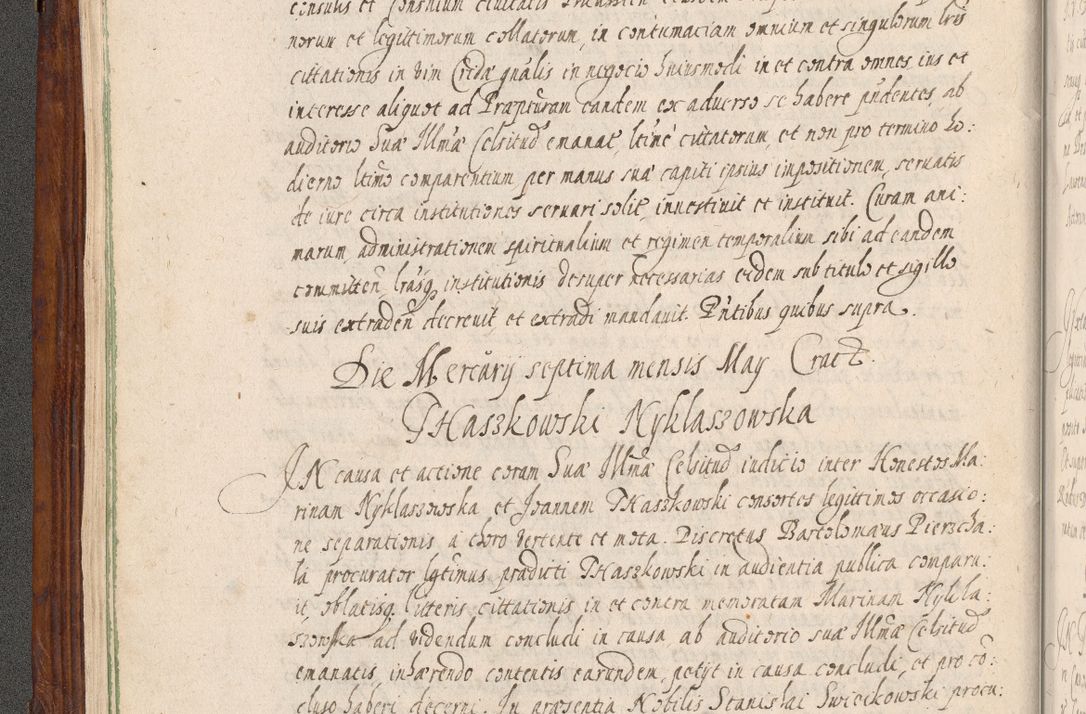 consulis et Consilium civitatis
norum et legittimorum collatorum, in contumaciam omnium et singulorum lris
cittationis in vim Crida' qualis in negocio huiusmodi in et contra omnes, ius et
interesse aliquot ad Prapturam eandem ex adverso se habere pudentes, ab
auditorio Suæ Illmæ Celsitud emanat, ltime cittatorum, et non pro termino ho:
dierno ltimo comparentium, per manus sua' capiti ipsius impositionem, servatis
de iure circa institutiones servari solit, investivit et instituit. Curam ani:
marum, administrationem spiritualium et regimen temporalium sibi ad eandem
committen, lrasq, institutionis desuper necessarias eidem sub titulo et sigillo
suis extraden decrevit et extradi mandavit. Pntibus quibus supra.
Die Mercurij septima mensis May Crac
THaszkowski Nyklaszowska
IN causa et actione coram Suæ Illmæ Celsitud iudicio inter Honestos Ma:
rinam Nyklaszowska et Joannem THaszkowski consortes legittimos occasio:
ne separationis a thoro vertente et mota. Discretus Bartolomæus Pierzcha:
la procurator lgtimus prædicti THaszkowski in audientia publica comparu:
it, oblatisq, litteris, cittationis in et contra memoratam Marinam Nykla:
szowska ad videndum concludi in causa, ab auditorio suæ Illmæ Celsitud
emanatis, inhærendo contentis earundem, petijt in causa concludi, et pro co:
cluso haberi decerni. In præsentia Nobilis Stanislai Swiecikowski procu: